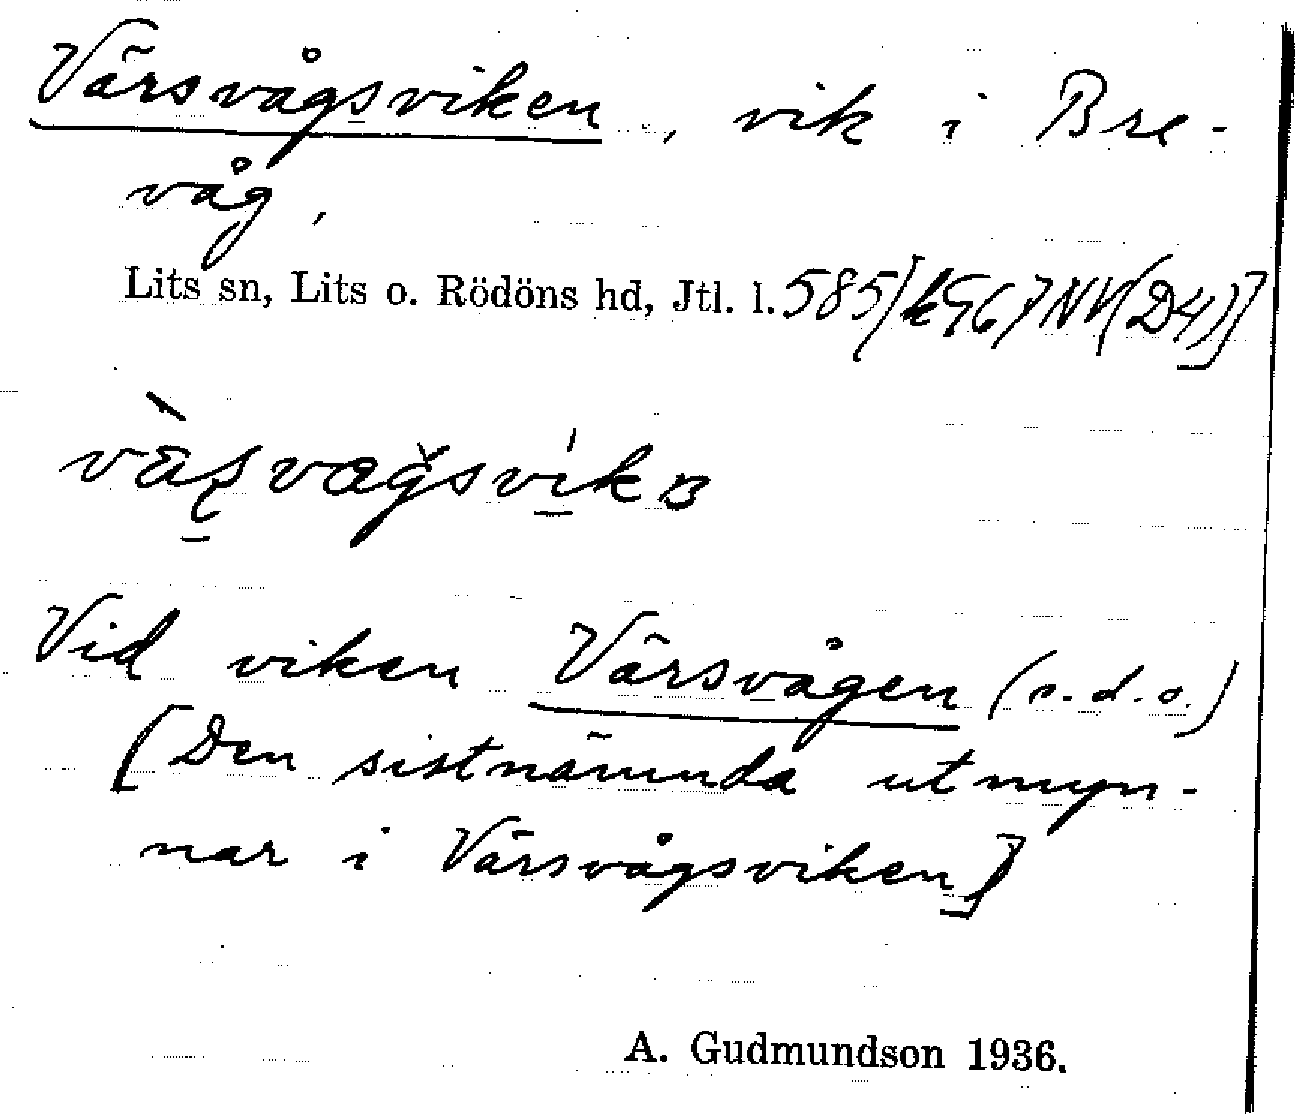 Värsvågsviken, vik i Bre-
våg,
Lits sn, Lits o. Rödöns hd, Jtl. l. 585
Vid viken Värsvågen (s.d.o.)
[Den sistnämnda utmyn-
nar i Värsvågsviken]
A. Gudmundson 1936.